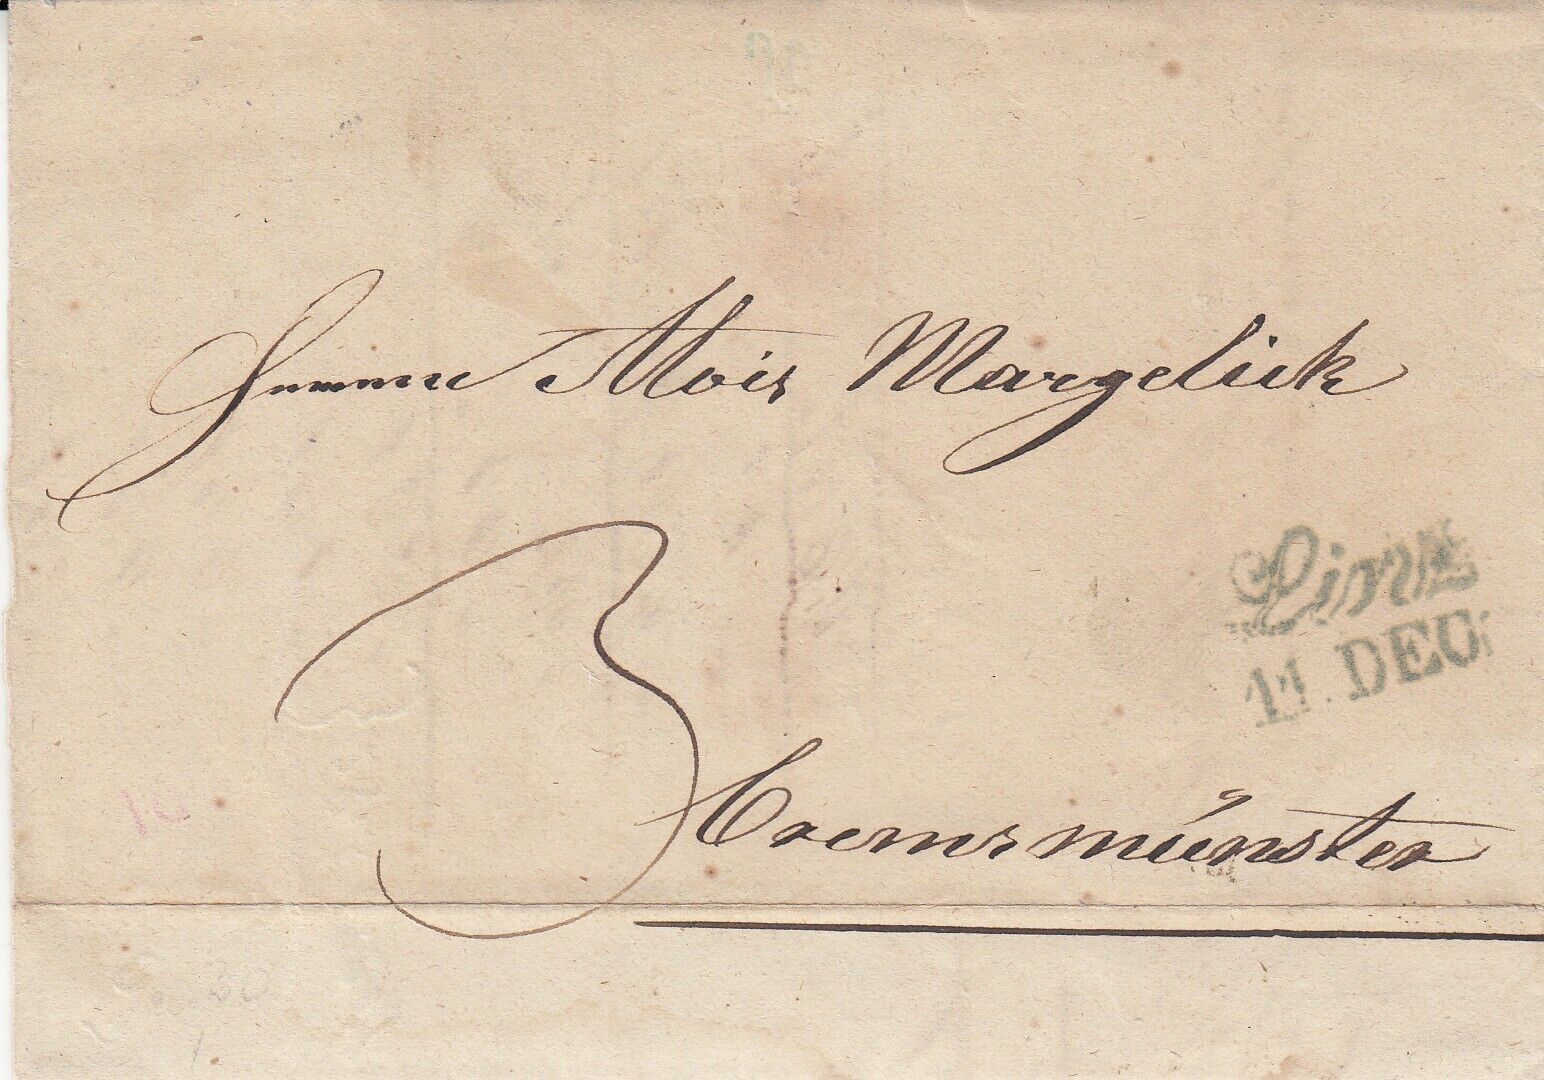 Alois Margelick
Linz
11. DEC:
3
Cremsmünster
10